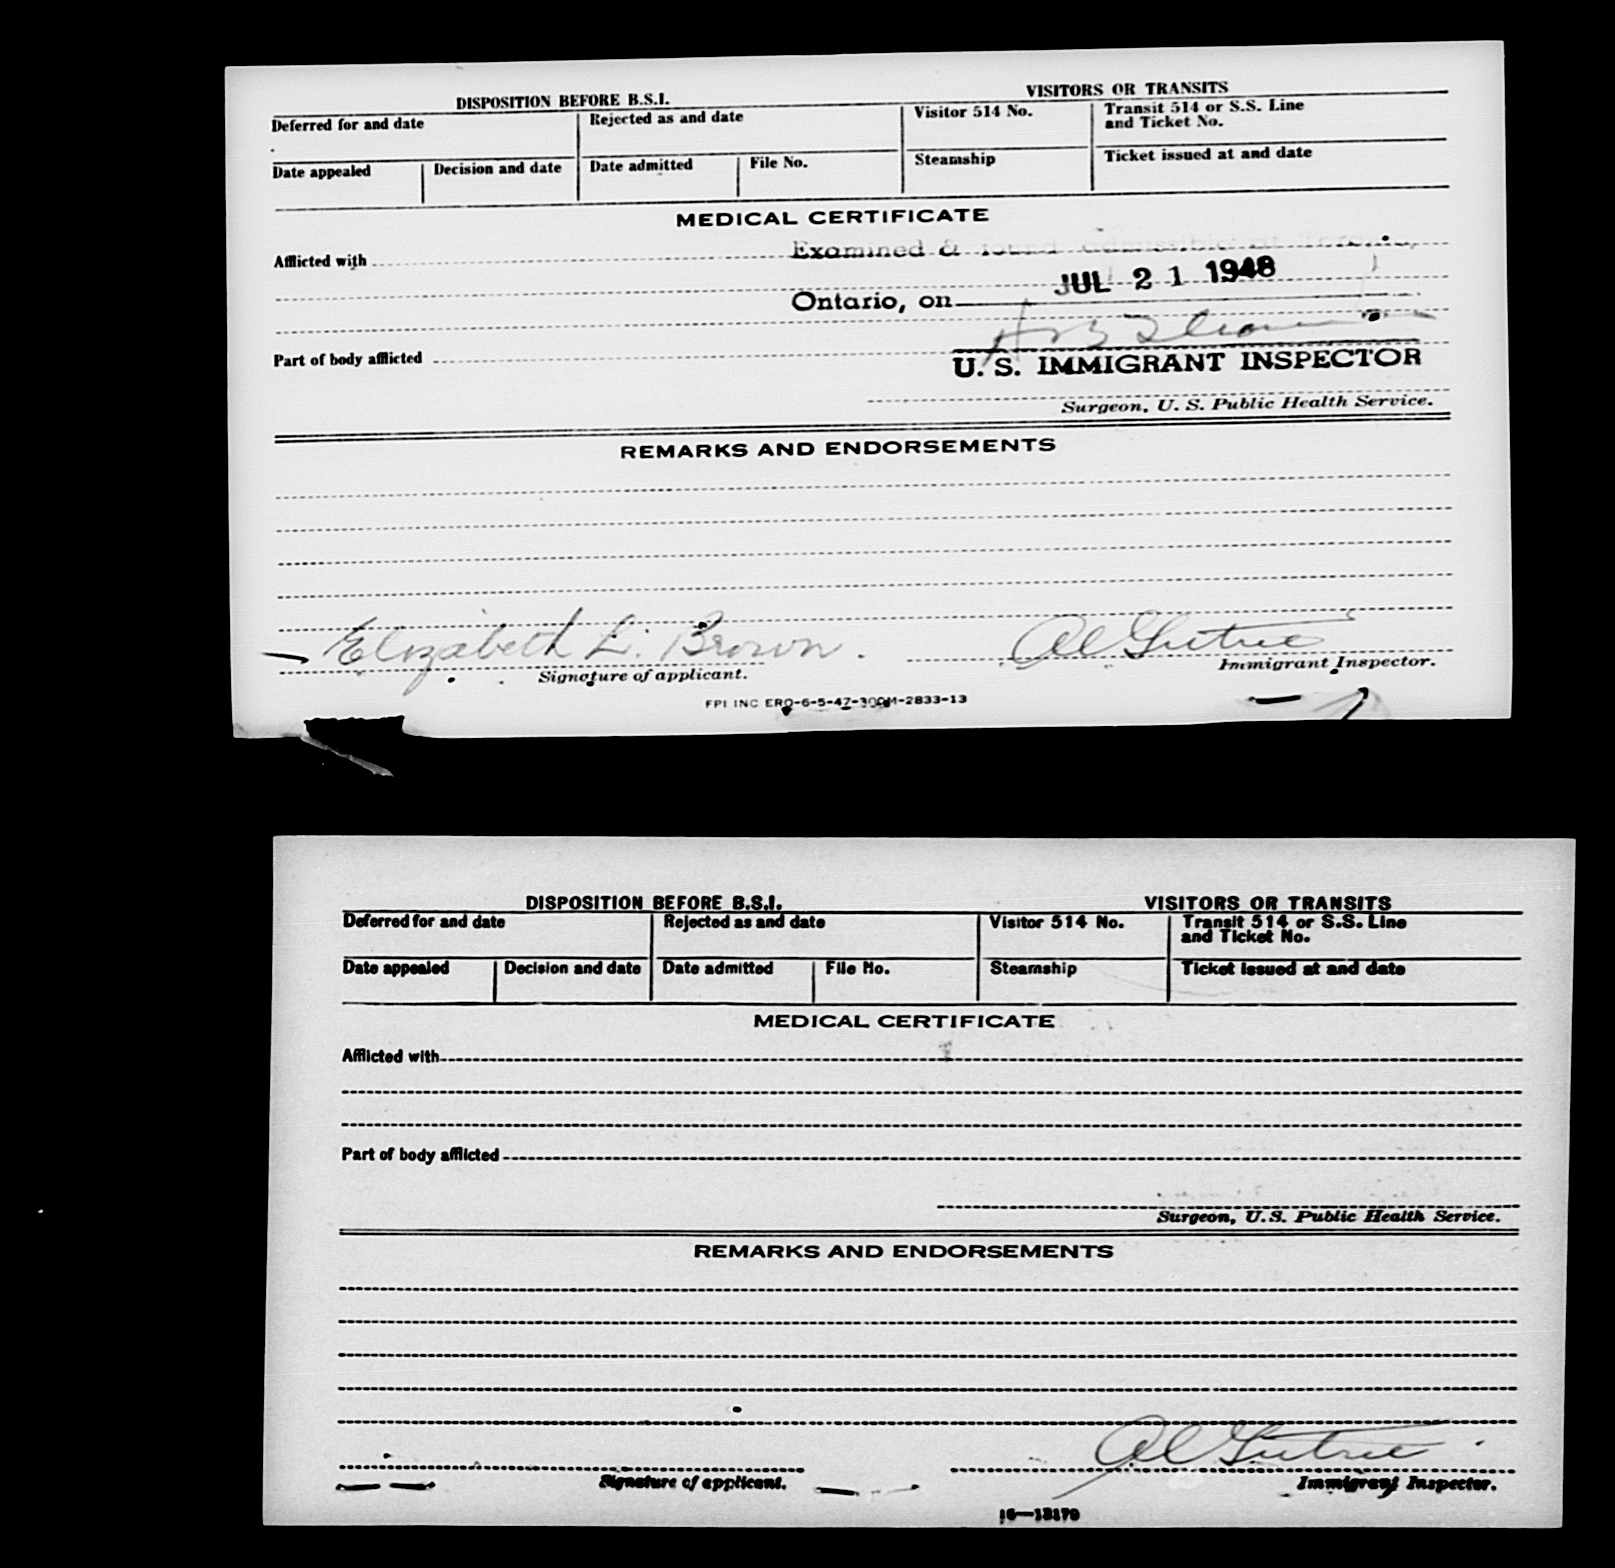 DISPOSITION BEFORE B.S.I. VISITORS OR TRANSITS
Deferred for and date Rejected as and date Visitor 514 No. Transit 514 or S.S. Line and Ticket No.
Date appealed Decision and date Date admitted File No. Steamship Ticket issued at and date
MEDICAL CERTIFICATE
Afflicted with Examined & found admissible at
Ontario, on JUL 21 1948
Part of body afflicted
U. S. IMMIGRANT INSPECTOR
Surgeon, U. S. Public Health Service.
REMARKS AND ENDORSEMENTS
Elizabeth L. Brown.
Signature of applicant. Immigrant Inspector.
FPI INC ERO-6-5-47-300M-2833-13
DISPOSITION BEFORE B.S.I. VISITORS OR TRANSITS
Deferred for and date Rejected as and date Visitor 514 No. Transit 514 or S.S. Line and Ticket No.
Date appealed Decision and date Date admitted File No. Steamship Ticket issued at and date
MEDICAL CERTIFICATE
Afflicted with
Part of body afflicted
Surgeon, U.S. Public Health Service.
REMARKS AND ENDORSEMENTS
Signature of applicant. Immigrant Inspector.
16—13179